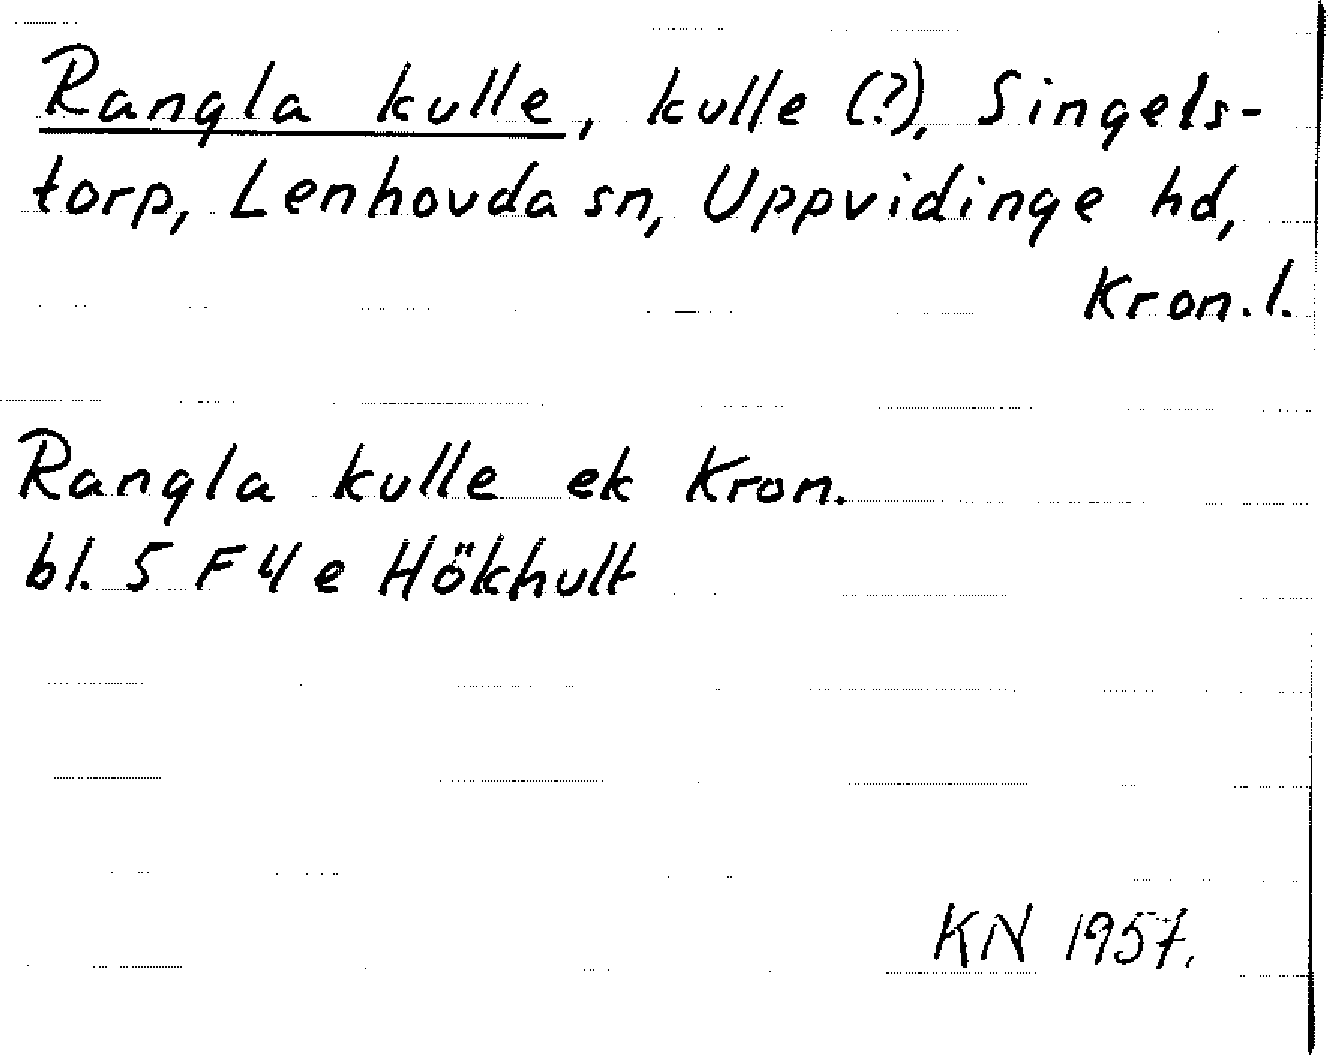 Rangla kulle, kulle (?), Singels-
torp, Lenhovda sn, Uppvidinge hd,
Kron. l.
Rangla kulle ek Kron.
bl. 5 F 4 e Hökhult
KN 1957.